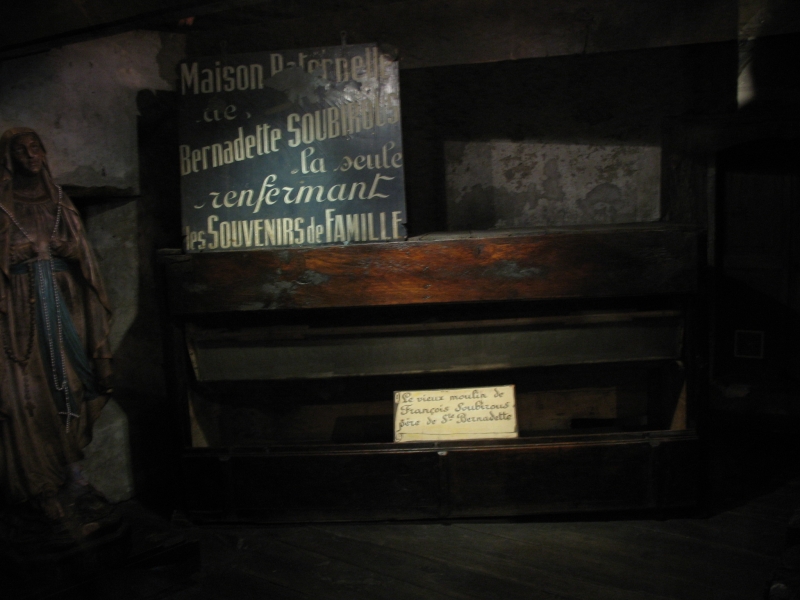 Maison Paternelle
de
Bernadette SOUBIROUS
la seule
renfermant
les SOUVENIRS de FAMILLE
Le vieux moulin de
François Soubirous
père de Ste Bernadette